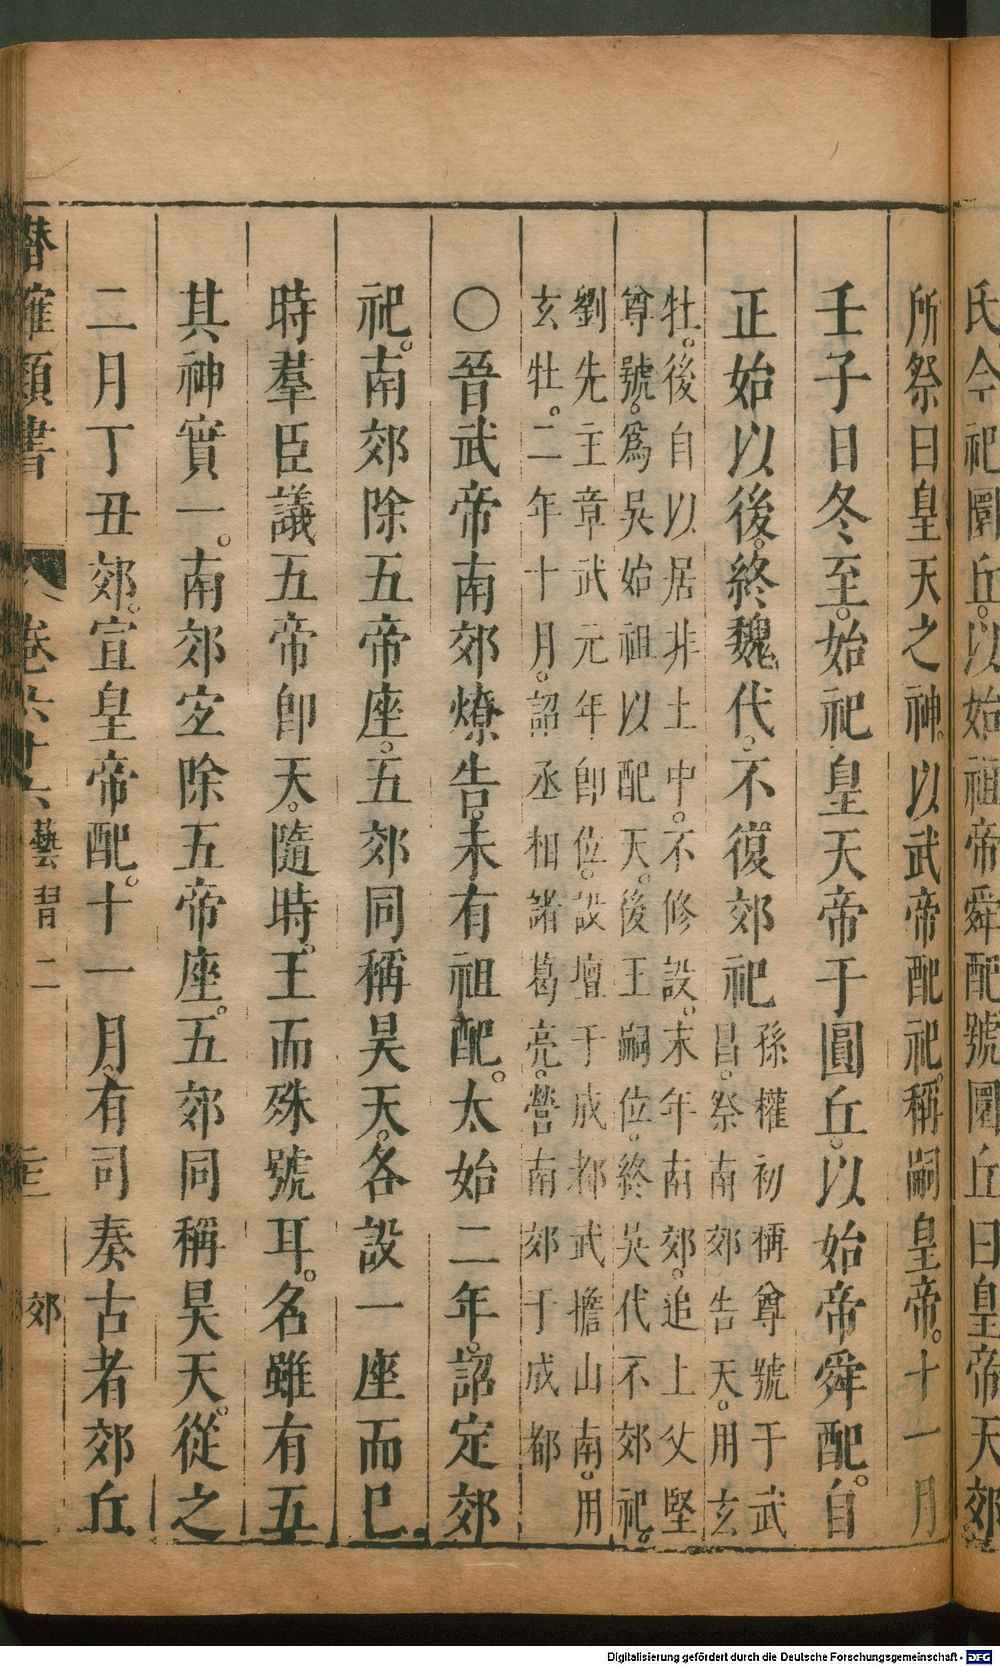 氏今祀圜丘。以始祖帝舜配號圜丘曰皇帝天郊
所祭曰皇天之神。以武帝配祀。稱嗣皇帝。十一月
壬子日冬至。始祀皇天帝于圓丘。以始帝舜配。自
正始以後。終魏代。不復郊祀
孫權初稱尊號于武
昌。祭南郊告天。用玄
牡。後自以居非土中。不修設。末年南郊。追上父堅
尊號。爲吳始祖以配天。後王嗣位。終吳代不郊祀。
劉先主章武元年卽位。設壇于成都武擔山南。用
玄牡。二年十月。詔丞相諸葛亮。營南郊于成都
〇晉武帝南郊燎告。未有祖配。太始二年。詔定郊
祀。南郊除五帝座。五郊同稱昊天。各設一座而已
時羣臣議五帝卽天。隨時。王而殊號耳。名雖有五
其神實一。南郊宐除五帝座。五郊同稱昊天。從之
二月丁丑郊。宣皇帝配。十一月。有司奏古者郊丘
潛確類書
卷六十六 藝習二
郊
Digitalisierung gefördert durch die Deutsche Forschungsgemeinschaft - DFG